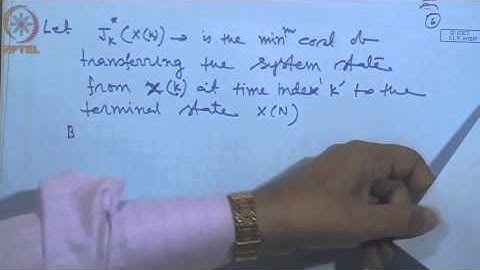 Let J*_K (X(N) → is the min^m cost of
transferring the system state
from X(k) at time index 'k' to the
terminal state X(N)
B
6
NPTEL